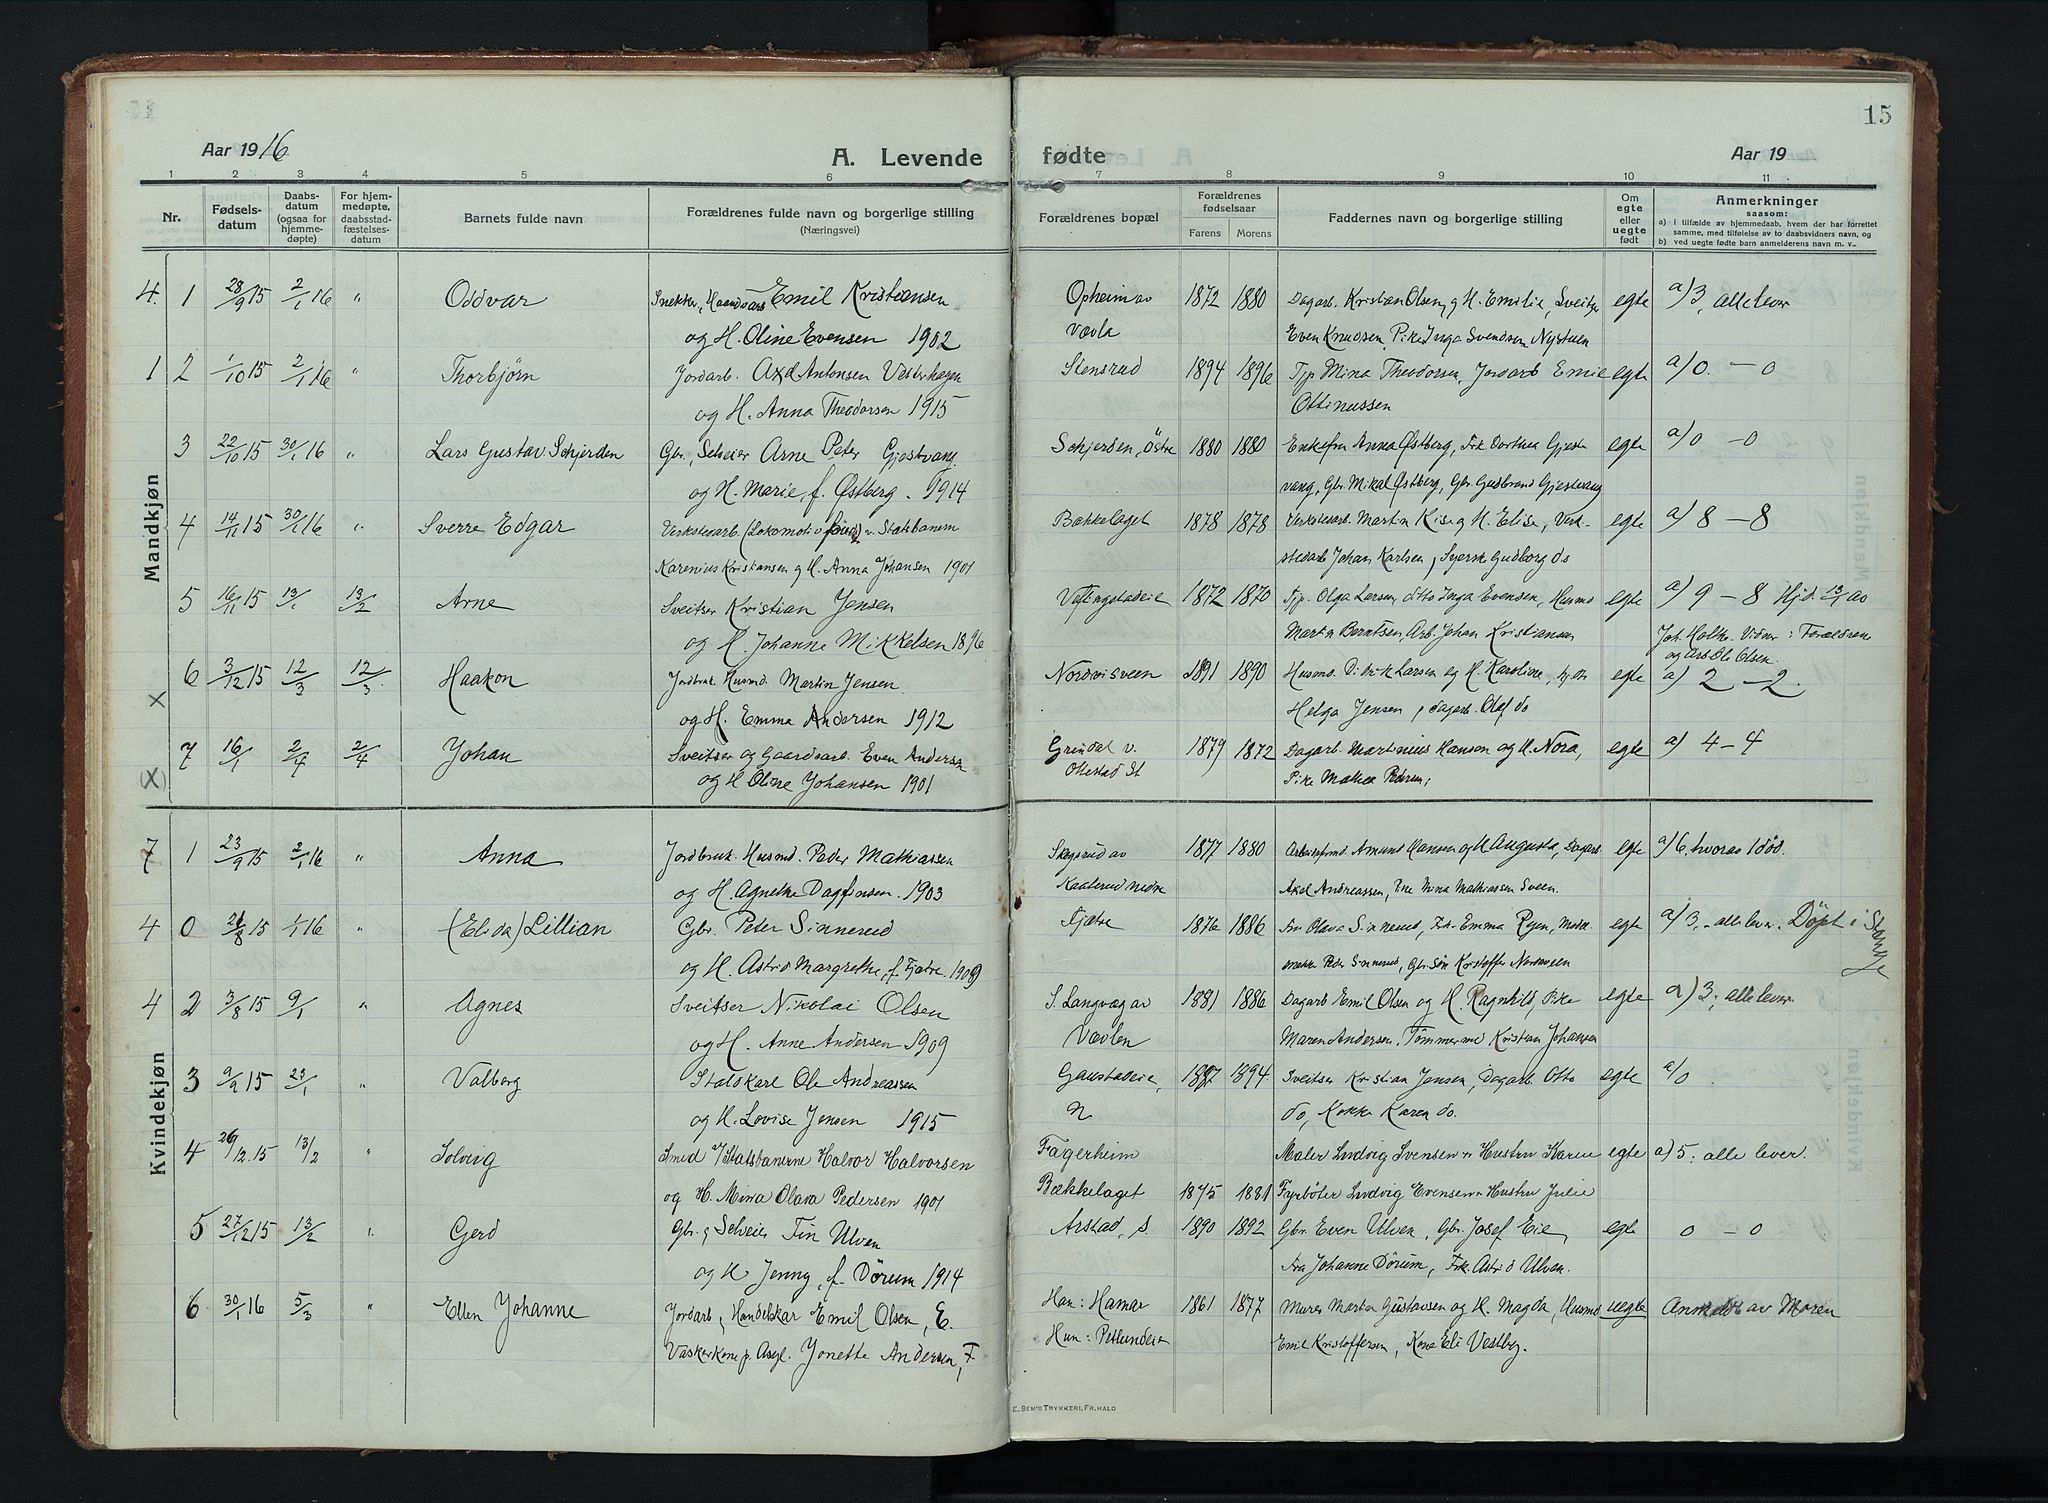 15
Aar 1916
A. Levende fødte
Aar 19
1 2 3 4 5 6 7 8 9 10 11
Nr.
Fødselsdatum
Daabsdatum (ogsaa for hjemmedøpte)
For hjemmedøpte, daabsstadfæstelsesdatum
Barnets fulde navn
Forældrenes fulde navn og borgerlige stilling
(Næringsvei)
Forældrenes bopæl
Forældrenes fødselsaar
Farens Morens
Faddernes navn og borgerlige stilling
Om egte eller uegte født
Anmerkninger
saasom:
a) i tilfælde av hjemmedaab, hvem der har forrettet samme, med tilføielse av to daabsvidners navn, og
b) ved uegte fødte barn anmelderens navn m. v.
Mandkjøn
4. 1 28/9 15 2/1 16 " Oddvar Snekker, Haandv. Emil Kristiansen Opheim av 1872 1880 Dagarb. Kristian Olsen og H. Emilie, Sveitser egte a) 3, alle lever
og H. Oline Evensen 1902 Vævla Even Knudsen, Pike Inga Svendsen Nystuen
1 2 1/10 15 2/1 16 " Thorbjörn Jordarb. Axel Antonsen Vesterhagen Stensrud 1894 1896 Tjp. Mina Theodorsen, Jordarb Emil egte a) 0 — 0
og H. Anna Theodorsen 1915 Ottinussen
3 22/10 15 30/1 16 " Lars Gustav Schjerden Gbr., Selveier Arne Peter Gjestvang Schjerden, Østre 1880 1880 Enkefru Anna Østberg, Frk Dorthea Gjest- egte a) 0 — 0
og H. Marie, f. Østberg. 1914 vang, Gbr. Mikal Østberg, Gbr. Gudbrand Gjestvang
4 14/11 15 30/1 16 " Sverre Edgar Verkstedarb. (Lokomotiv) v. Statsbanern Bækkelaget 1878 1878 Verkstedarb. Martin Kise og H. Elise, Verk- egte a) 8 — 8
Karenius Kristiansen og H. Anna Johansen 1901 stedarb Johan Karlsen, Syerske Gudborg do
5 16/11 15 13/1 13/2 Arne Sveitser Kristian Jensen 1872 1870 Tjp. Olga Larsen, Otto Inga Evensen, Husmd egte a) 9 — 8 Hjd. 13/1 av
og H. Johanne Mikkelsen 1896 Martin Berntsen, Arb. Johan Kristiansen Joh. Holthe. Vidner: Forældrene
og Arb. Ole Olsen.
X 6 3/12 15 12/3 12/3 Haakon Jordbruk. Husmd. Martin Jensen Nordvisveen 1891 1890 Husmd. Didrik Larsen og H. Karoline, egte a) 2 — 2.
og H. Emma Andersen 1912 Helga Jensen, dagarb. Olaf do
(X) 7 16/1 2/4 2/4 Johan Sveitser og Gaardsarb. Even Andersen Grindal v. 1879 1872 Dagarb. Martinius Hansen og H. Nora, egte a) 4 — 4
og H Oline Johansen 1901 Ottestad St Pike Mathea
Kvindekjøn
7 1 23/9 15 2/1 16 " Anna Jordbruk. Husmd. Peder Mathiassen Skogsrud av 1877 1880 Amund Hansen og H Augusta, Dagarb. egte a) 6, hvorav 1 död.
og H. Agnethe Dagfinsen. 1903 Kaaterud nedre Axel Andreassen, Mina Mathiassen Sveen.
4 0 21/8 15 1/1 16 " (Elida) Lillian Gbr. Peter Sinnerud Fjætre 1876 1886 Fru Olava Sinnerud, Frk. Emma Ryen, egte a) 3, alle lever. Döpt i Stange
og H. Astrid Margrethe, f. Fjætre 1909 Peder Sinnerud, Gbr.sön Kristoffer Nordsveen
4 2 3/8 15 9/1 " Agnes Sveitser Nikolai Olsen S. Langvæg av 1881 1886 Dagarb Emil Olsen og H. Ragnhild, Pike egte a) 3; alle lever
og H. Anne Andersen 1909 Vævlen Maren Andersen, Tömmermd Kristian Johansen
3 9/9 15 23/1 " Valborg Staldkarl Ole Andreassen Gaustadeie, 1887 1894 Sveitser Kristian Jensen, Dagarb. Otto egte a) 0
og H. Lovise Jensen 1915 N do, Kokke Karen do.
4 26/12.15 13/2 " Solveig Smed v/Statsbanerne Halvor Halvorsen Fagerheim Maler Ludvig Svensen Hustru Karen egte a) 5; alle lever.
og H. Mina Olava Pedersen 1901 Bækkelaget 1875 1881 Fyrböter Ludvig Evensen Hustru Julie
5 27/12 15 13/2 " Gerd Gbr. og Selveier Fin Ulven Arstad, s. 1890 1892 Gbr. Even Ulven, Gbr. Josef Eie, egte 0 — 0
og H Jenny, f. Dörum 1914 Fru Johanne Dörum, Frk. Astrid Ulven.
6 30/1 16 5/3 " Ellen Johanne Jordarb, Handelskar Emil Olsen, E. Han: Hamar 1861 1877 Murer Martin Gustavsen og H. Magda, Husmd uegte Anmeldt av Moren
Vaskerkone p. Asyl. Jonette Andersen, F. Hun: Emil Kristoffersen, Kone Eli Vestby.
E. SEM'S TRYKKERI, FR.HALD